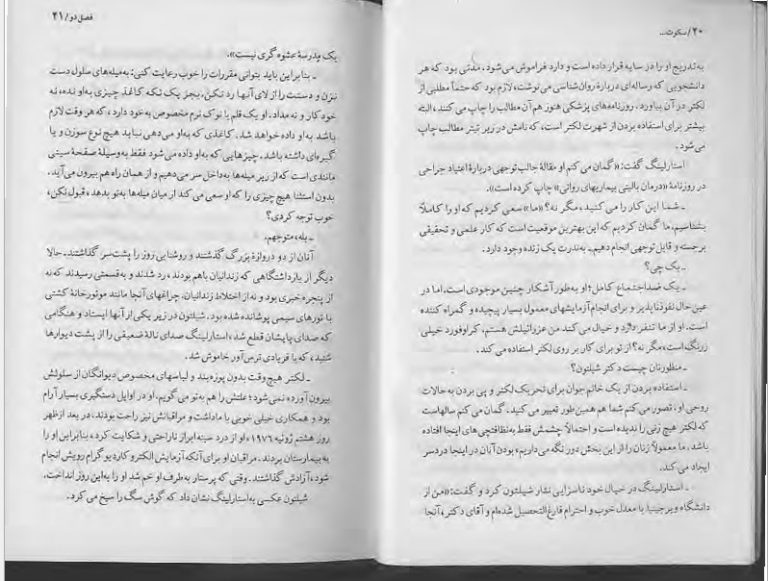 ۲۰/سکوت...
به‌تدریج او را در سایه قرار داده است و دارد فراموش می‌شود. مدتی بود که هر
دانشجویی که رساله‌ای دربارهٔ روان‌شناسی می‌نوشت، لازم بود که حتماً مطلبی از
لکتر در آن بیاورد. روزنامه‌های پزشکی هنوز هم آن مطالب را چاپ می‌کنند، البته
بیشتر برای استفاده بردن از شهرت لکتر است، که نامش در زیر تیتر مطالب چاپ
می‌شود.
استارلینگ گفت: «گمان می‌کنم او مقالهٔ جالب‌توجهی دربارهٔ اعتیاد جراحی
در روزنامهٔ «درمان بالینی بیماریهای روانی» چاپ کرده است».
ـ شما این کار را می‌کنید، مگر نه؟ «ما» سعی کردیم که او را کاملاً
بشناسیم، ما گمان کردیم که این بهترین موقعیت است که کار علمی و تحقیقی
برجسته و قابل توجهی انجام دهیم. به‌ندرت یک زنده وجود دارد.
ـ یک چی؟
ـ یک ضداجتماع کامل؛ او به‌طور آشکار چنین موجودی است. اما در
عین‌حال نفوذناپذیر و برای انجام آزمایشهای معمول بسیار پیچیده و گمراه کننده
است. او از ما تنفر دارد و خیال می‌کند من عزرائیلش هستم. کراوفورد خیلی
زرنگ است، مگر نه؟ از تو برای کار بر روی لکتر استفاده می‌کند.
ـ منظورتان چیست دکتر شیلتون؟
ـ استفاده بردن از یک خانم جوان برای تحریک لکتر و پی بردن به حالات
روحی او، تصور می‌کنم شما هم همین طور تعبیر می‌کنید. گمان می‌کنم سالهاست
که لکتر هیچ زنی را ندیده است و احتمالاً چشمش فقط به نظافتچی‌های اینجا افتاده
باشد. ما معمولاً زنان را از این بخش دور نگه می‌داریم، بودن آنان در اینجا دردسر
ایجاد می‌کند.
ـ استارلینگ در خیال خود ناسزایی نثار شیلتون کرد و گفت: «من از
دانشگاه ویرجینیا با معدل خوب و احترام فارغ‌التحصیل شده‌ام و آقای دکتر، آنجا
فصل دو/۲۱
یک مدرسهٔ عشوه‌گری نیست».
ـ بنابراین باید بتوانی مقررات را خوب رعایت کنی: به میله‌های سلول دست
نزن و دستت را از لای آنها رد نکن. بجز یک تکه کاغذ چیزی به‌او نده، نه
خودکار و نه مداد. او یک قلم با نوک نرم مخصوص به‌خود دارد، که هر وقت لازم
باشد به‌او داده خواهد شد. کاغذی که به‌او می‌دهی نباید هیچ نوع سوزن و یا
گیره‌ای داشته باشد. چیزهایی که به‌او داده می‌شود فقط به‌وسیلهٔ صفحهٔ سینی
مانندی است که از زیر میله‌ها به‌داخل سر می‌دهیم و از همان راه هم بیرون می‌آید.
بدون استثنا هیچ چیزی را که او سعی می‌کند از میان میله‌ها به‌تو بدهد، قبول نکن،
خوب توجه کردی؟
ـ بله، متوجهم.
آنان از دو دروازهٔ بزرگ گذشتند و روشنایی روز را پشت‌سر گذاشتند. حالا
دیگر از بازداشتگاهی که زندانیان باهم بودند، رد شدند و به‌قسمتی رسیدند که نه
از پنجره خبری بود و نه از اختلاط زندانیان. چراغهای آنجا مانند موتورخانهٔ کشتی
با تورهای سیمی پوشانده شده بود. شیلتون در زیر یکی از آنها ایستاد و هنگامی
که صدای پایشان قطع شد، استارلینگ صدای نالهٔ ضعیفی را از پشت دیوارها
شنید، که با فریادی ترس‌آور خاموش شد.
ـ لکتر هیچ‌وقت بدون پوزه‌بند و لباسهای مخصوص دیوانگان از سلولش
بیرون آورده نمی‌شود؛ علتش را هم به‌تو می‌گویم. او در اوایل دستگیری بسیار آرام
بود و همکاری خیلی خوبی با ما داشت و مراقبانش نیز راحت بودند. در بعد ازظهر
روز هشتم ژوئیه ۱۹۷۶، او از درد سینه ابراز ناراحتی و شکایت کرد، بنابراین او را
به‌بیمارستان بردند. مراقبان او برای آنکه آزمایش الکتروکاردیوگرام رویش انجام
شود، آزادش گذاشتند. وقتی که پرستار به‌طرف او خم شد او را به‌این روز انداخت.
شیلتون عکسی به‌استارلینگ نشان داد که گوش سگ را سیخ می‌کرد.